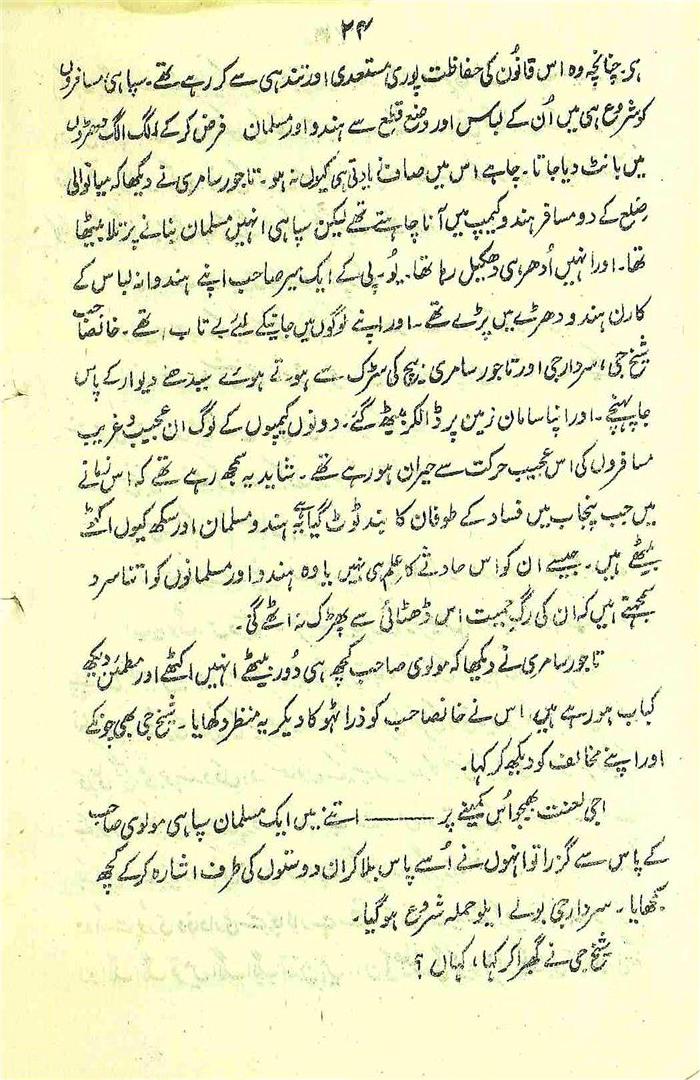 ۲۴
ہو۔ چنانچہ وہ اس قانُون کی حفاظت پوری مستعدی اور تندہی سے کر رہے تھے۔ سپاہی مسافروں
کو شروع ہی میں اُن کے لباس اور وضع قطع سے ہندو اور مسلمان فرض کر کے الگ الگ دھڑوں
میں بانٹ دیا جاتا۔ چاہے اس میں صاف زیادتی ہی کیوں نہ ہو۔ تاجور سامری نے دیکھا کہ میانوالی
ضِلع کے دو مسافر ہندو کیمپ میں آنا چاہتے تھے لیکن سپاہی انہیں مسلمان بنانے پر تلا بیٹھا
تھا۔ اور انہیں اُدھر ہی دھکیل رہا تھا۔ یُو۔ پی کے ایک میر صاحب اپنے ہندوانہ لباس کے
کارن ہندو دھڑے میں پڑے تھے۔ اور اپنے لوگوں میں جانیکے لئے بے تاب تھے۔ خانصاحب
شیخ جی، سردار جی اور تاجور سامری بیچ کی سڑک سے ہوتے ہوئے سیدھے دیوار کے پاس
جا پہنچے۔ اور اپنا سامان زمین پر ڈالکر بیٹھ گئے۔ دونوں کیمپوں کے لوگ ان عجیب و غریب
مسافروں کی اس عجیب حرکت سے حیران ہو رہے تھے۔ شاید یہ سمجھ رہے تھے کہ اس زمانے
میں جب پنجاب میں فساد کے طوفان کا بند ٹوٹ گیا ہے یہ ہندو مسلمان اور سکھ کیوں اکٹھے
بیٹھے ہیں۔ جیسے ان کو اس حادثے کا عِلم ہی نہیں یا وہ ہندو اور مسلمانوں کو اتنا سرد
سمجھتے ہیں کہ ان کی رگِ حمیت اس ڈھٹائی سے پھڑک نہ اٹھے گی۔
تاجور سامری نے دیکھا کہ مولوی صاحب کچھ ہی دُور بیٹھے انہیں اکٹھے اور مطمئن دیکھ
کباب ہو رہے ہیں، اس نے خانصاحب کو ذرا ٹہوکا دیکر یہ منظر دکھایا۔ شیخ جی بھی چونکے
اور اپنے مخالف کو دیکھ کر کہا۔
اجی لعنت بھیجو اُس کمینے پر ——— اتنے میں ایک مسلمان سپاہی مولوی صاحب
کے پاس سے گزرا تو انہوں نے اُسے پاس بلا کر ان دوستوں کی طرف اشارہ کر کے کچھ
سمجھایا۔ سردار جی بولے ایلو حملہ شروع ہو گیا۔
شیخ جی نے گھبرا کر کہا، کہاں؟